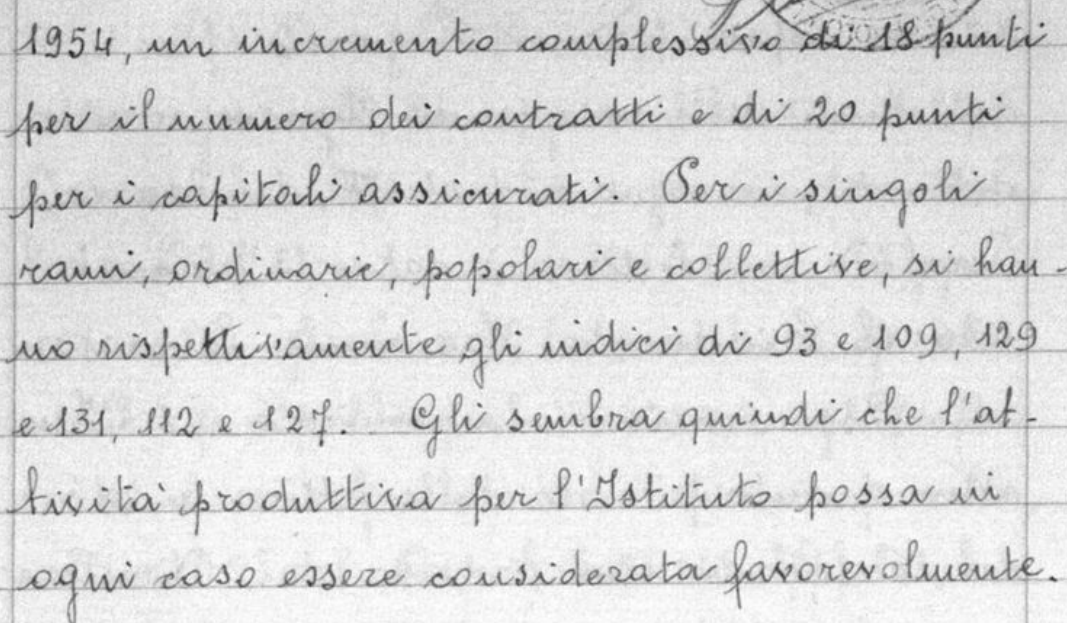 1954, un incremento complessivo di 18 punti
per il numero dei contratti e di 20 punti
per i capitali assicurati. Per i singoli
rami, ordinarie, popolari e collettive, si han-
no rispettivamente gli indici di 93 e 109, 129
e 131, 112 e 127. Gli sembra quindi che l'at-
tività produttiva per l'Istituto possa in
ogni caso essere considerata favorevolmente.